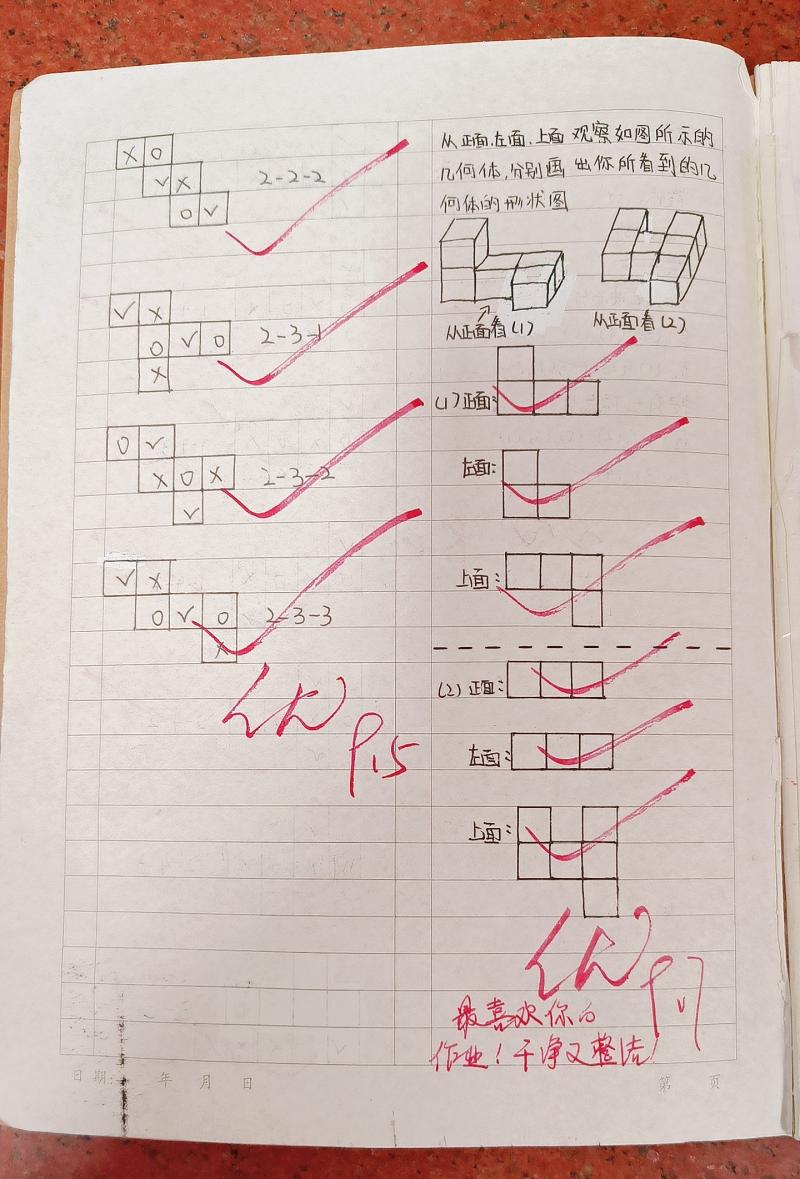 × ○
√ ×
○ √
2-2-2
√ ×
○ √ ○
×
2-3-1
○ √
× ○ ×
√
2-3-2
√ ×
○ √ ○
×
2-3-3
优
P15
从正面.左面.上面 观察如图所示的
几何体,分别画出你所看到的几
何体的形状图
从正面看(1)
从正面看(2)
(1)正面:
左面:
上面:
(2)正面:
左面:
上面:
优
P17
最喜欢你的
作业!干净又整洁!
日期: 年 月 日
第 页